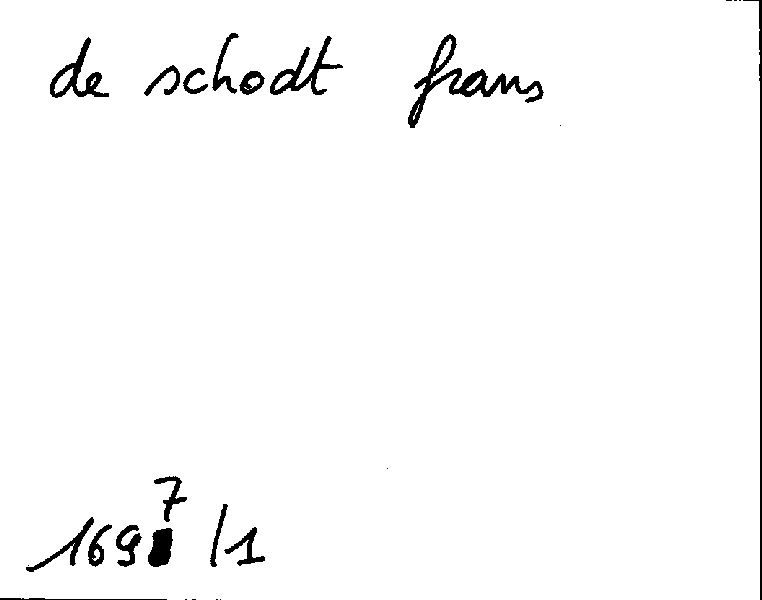 de schodt frans
1697/1